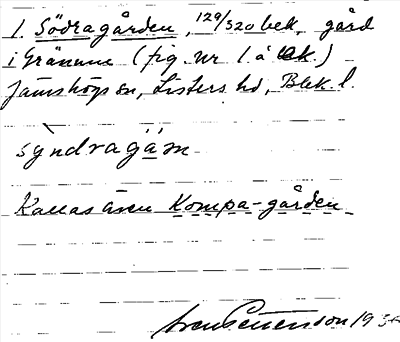 1. Södragården, 129/320 bek, gård
i Gränum (fig. nr 1 å ek.)
Jämshögs sn, Listers hd, Blek. l.
sỳndragä̀ṇ
Kallas även Kompa-gården
Sven Benson 193